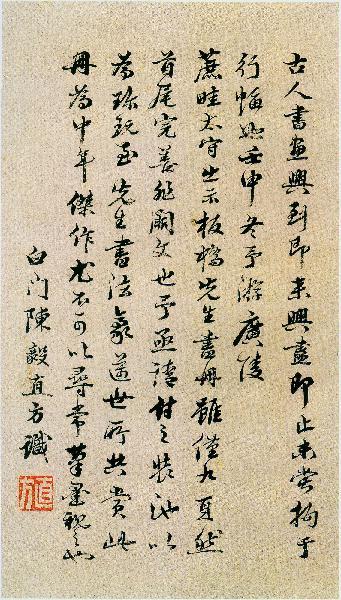 古人書畫興到即來興盡即止未嘗拘于
行幅也壬申冬予游廣陵
蕉畦太守出示板橋先生書冊雖僅九頁然
首尾完善非闕文也予亟請付之裝池以
為珍玩至先生書法氣道世所共賞此
冊為中年傑作尤不可以尋常筆墨視之也
白门陳毅直方識
直方